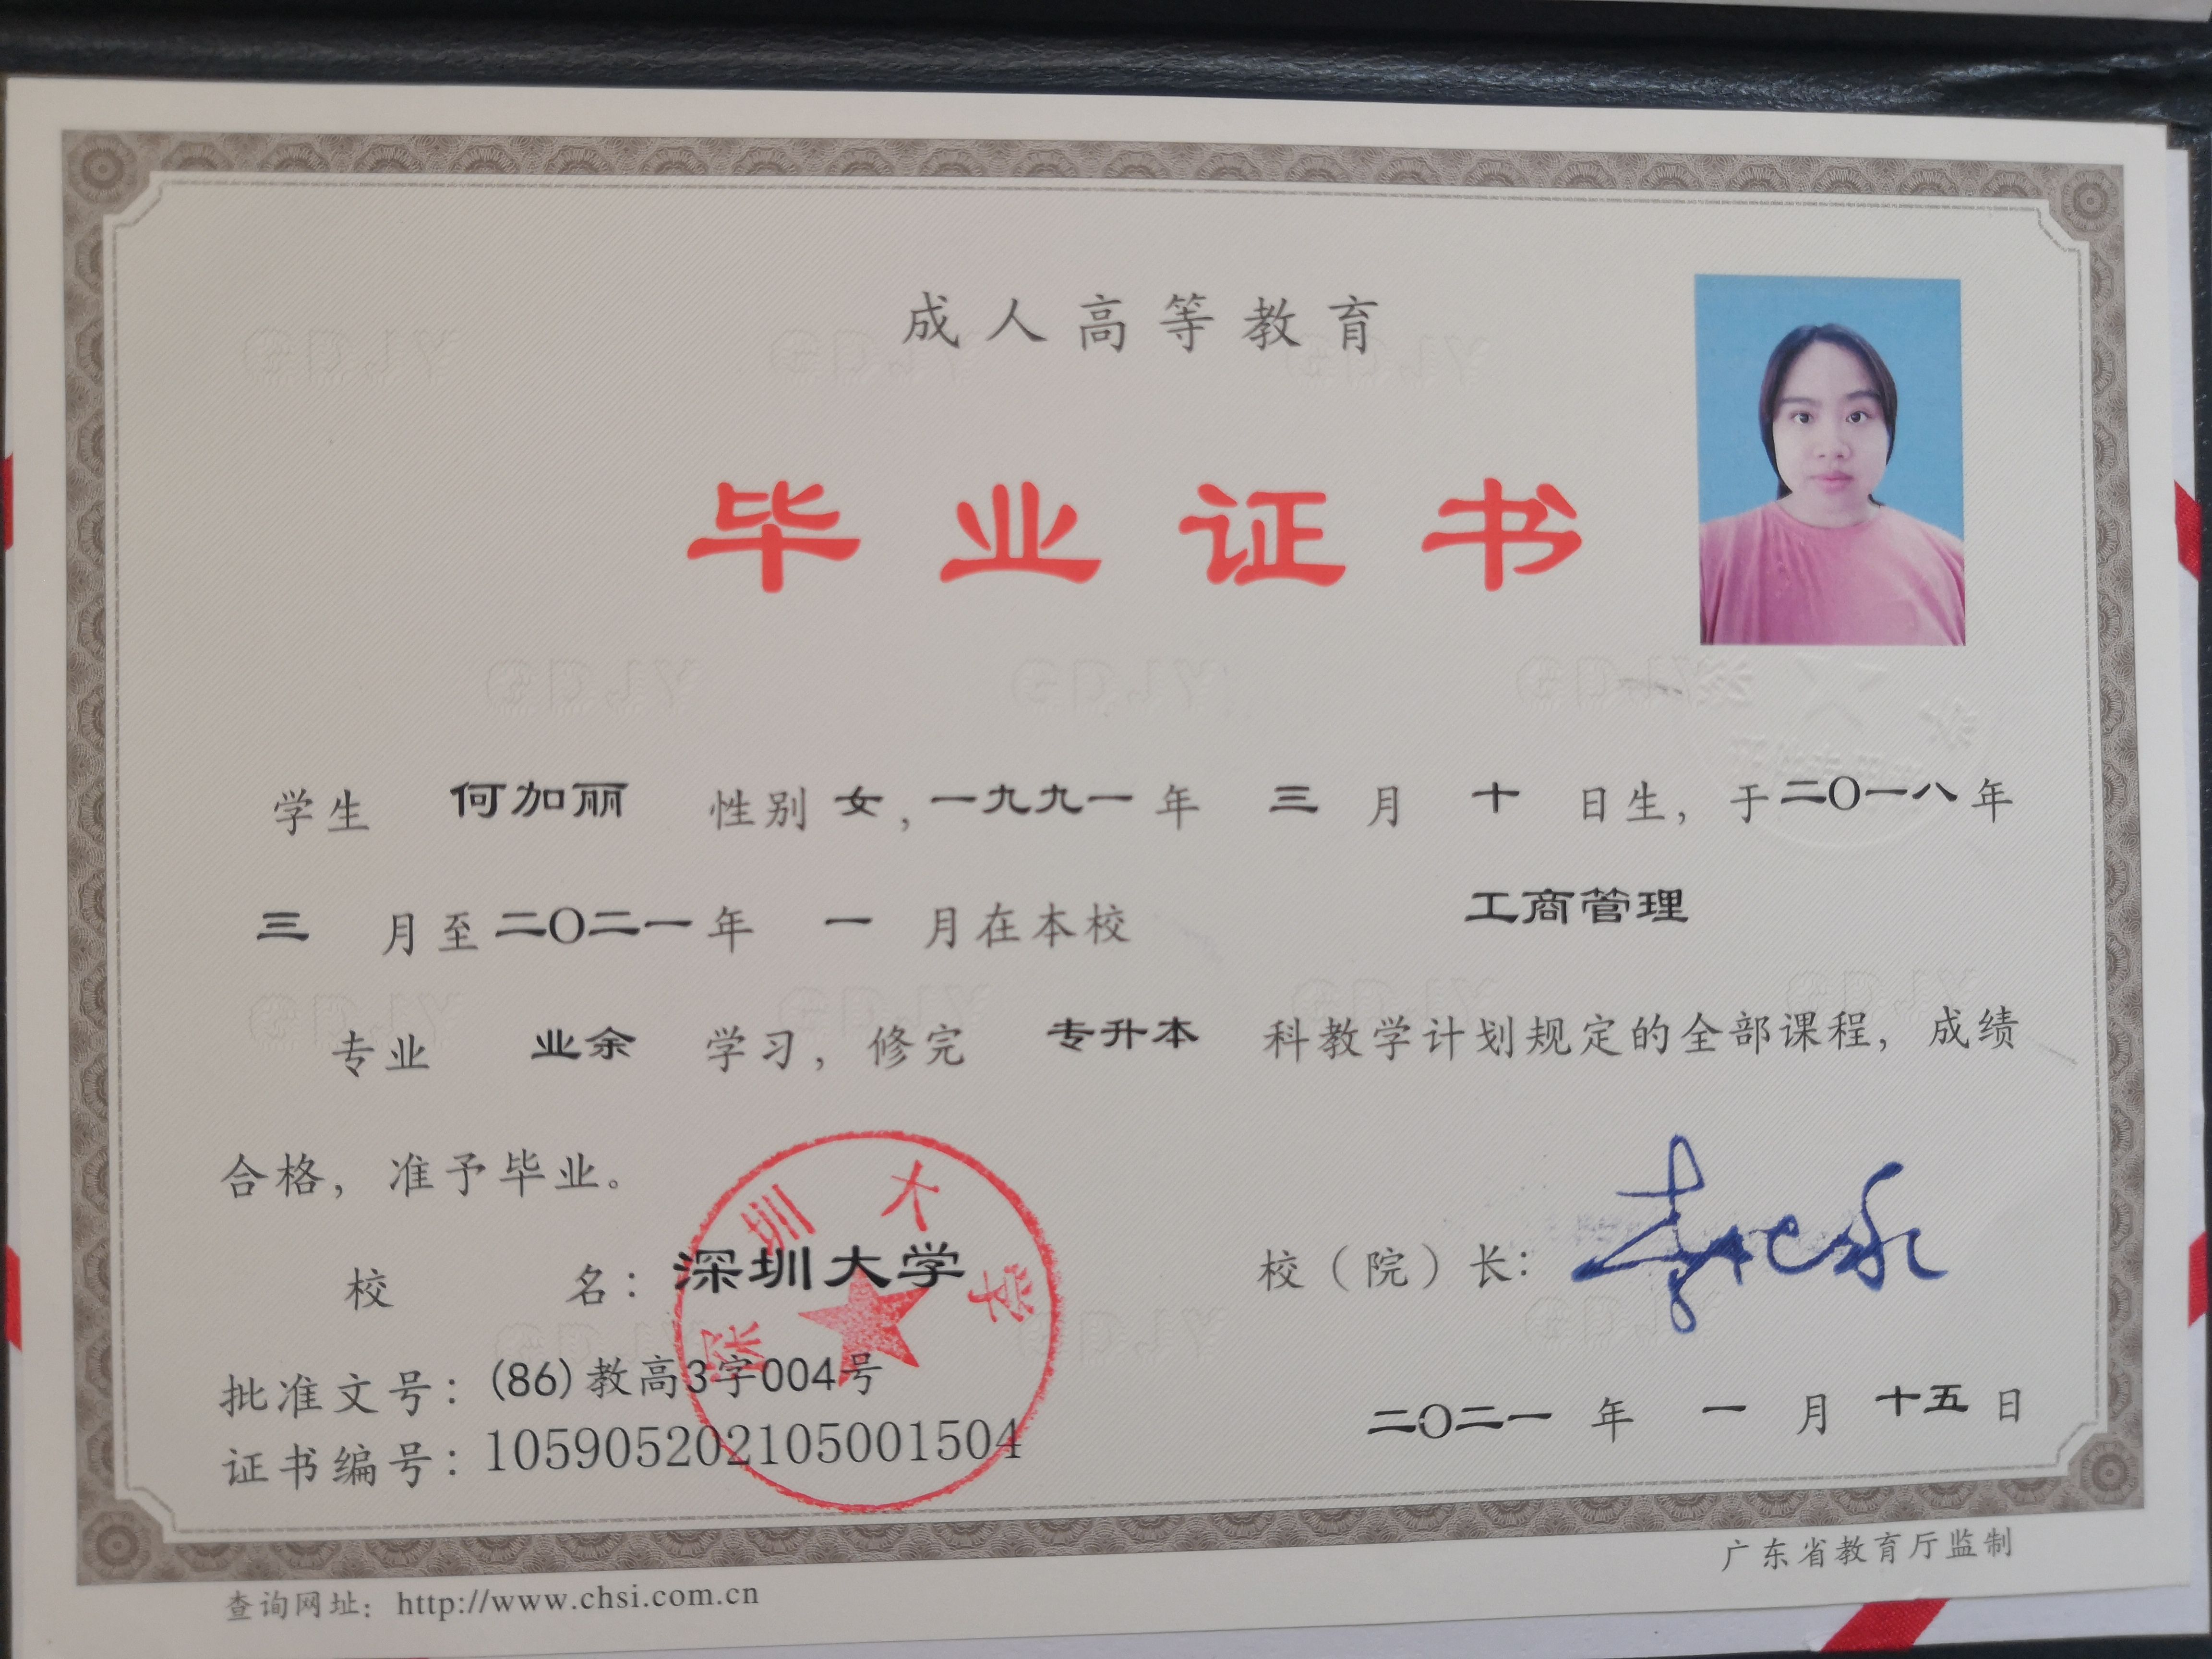 成人高等教育
毕业证书
学生 何加丽 性别 女，一九九一年 三 月 十 日生，于二〇一八年
三 月至二〇二一年 一 月在本校 工商管理
专业 业余 学习，修完 专升本 科教学计划规定的全部课程，成绩
合格，准予毕业。
校 名：深圳大学
校（院）长：
批准文号：(86)教高3字004号
二〇二一 年 一 月 十五 日
证书编号：105905202105001504
深圳大学
广东省教育厅监制
查询网址：http://www.chsi.com.cn